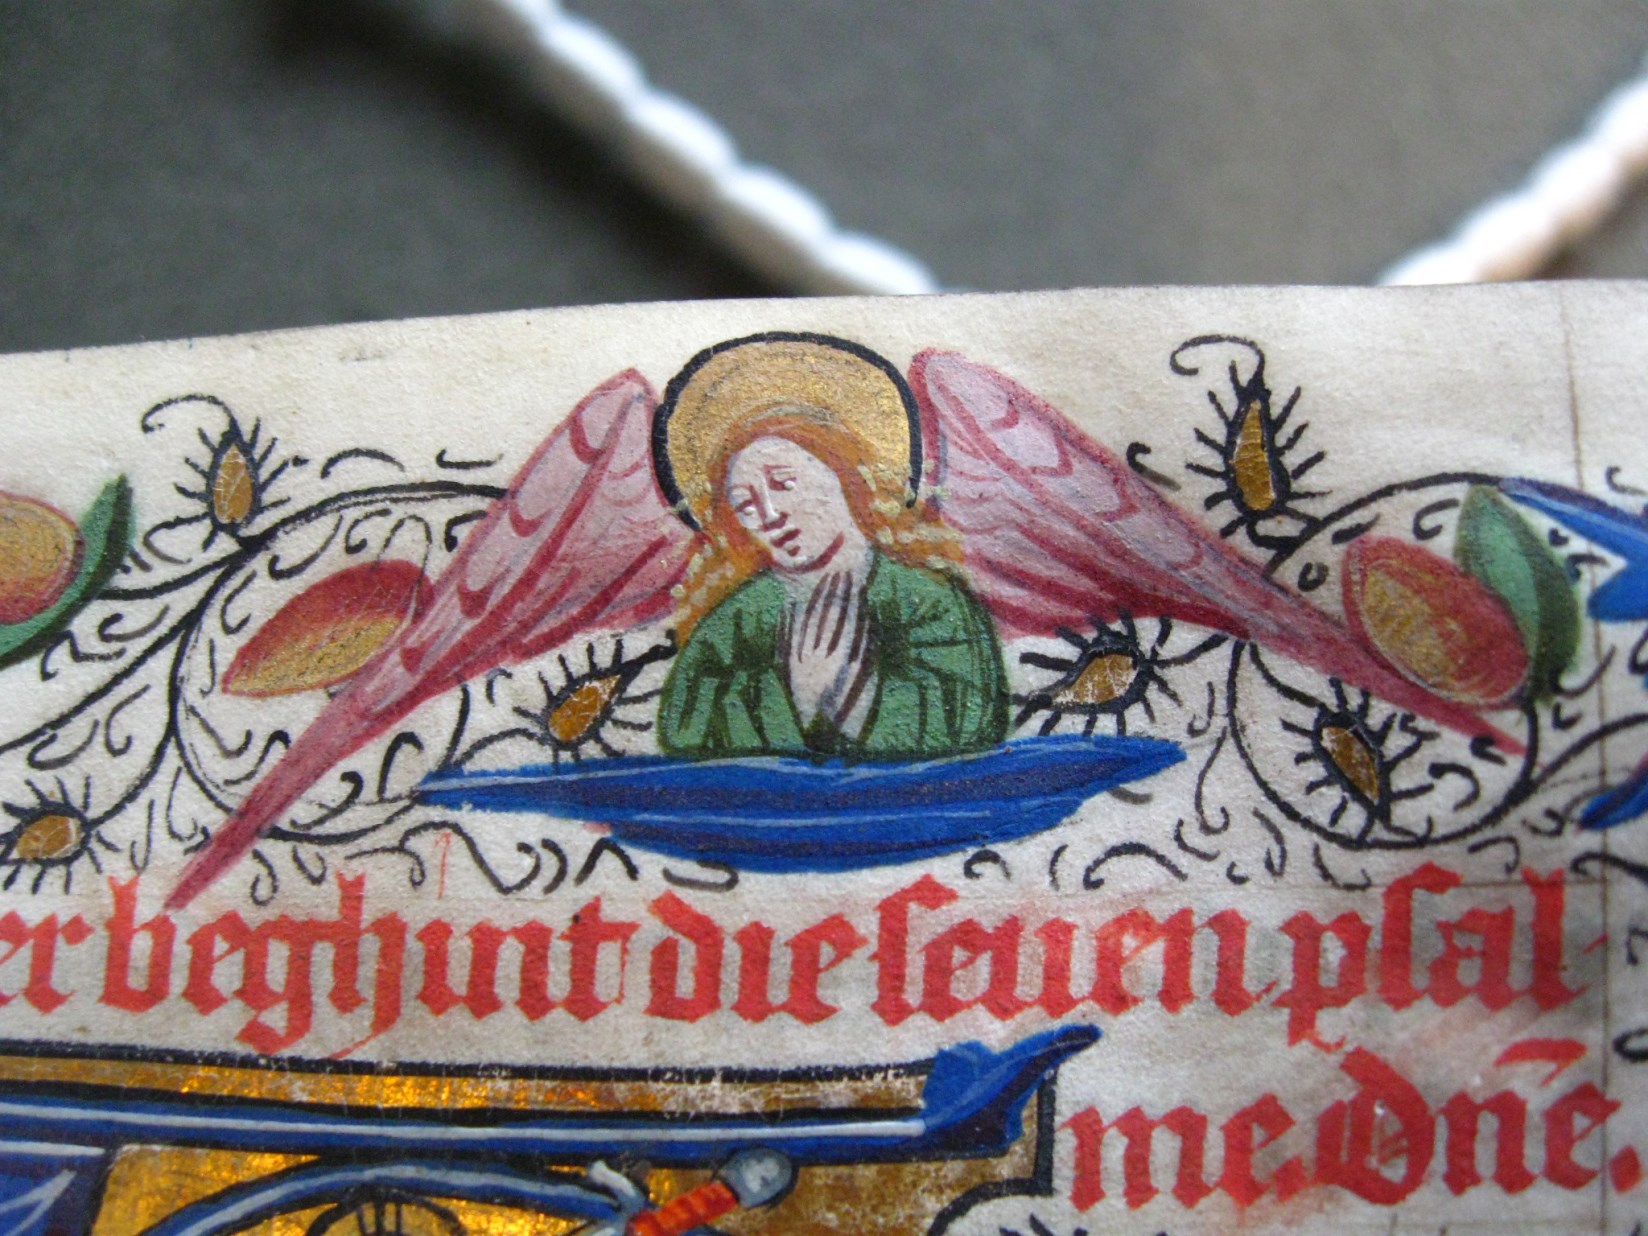 er beghint die seuen psal-
me. Dñe.